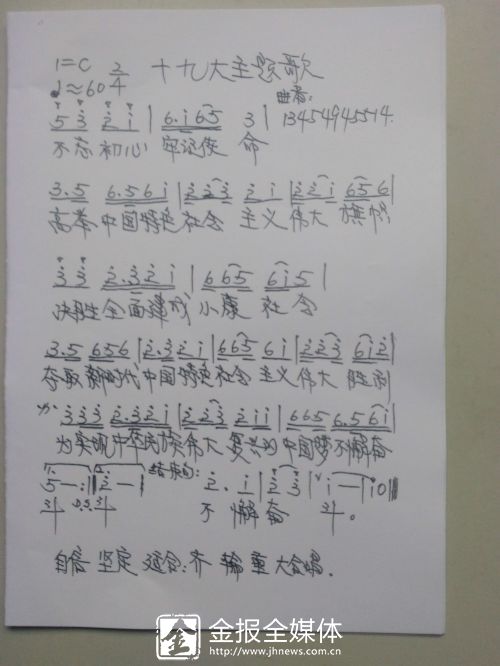 1=C 2/4 十九大主题歌
♩≈60
5 3 2 i | 6.i 65 3 | 13454945514.
不忘初心 牢记使 命
3.5 6.5 6 i | 2 2 3 2 i | 2 2 i 6 5 6 |
高举中国特色社会 主义 伟大 旗帜
3 3 2.3 2 i | 6 6 5 6 i 5 |
决胜全面建成 小康 社会
3.5 6 5 6 | 2.3 2 i | 6 6 5 6 i | 2 2 3 6 i 2 |
夺取新时代中国特色社会 主义 伟大 胜利
3 3 3 2.3 2 i | 2 2 3 2 i i | 6 6 5 6.5 6 i |
为实现中华民族伟大 复兴的中国梦不懈奋
1. 2. 结束句:
5 — :‖ 2 — | 2. i | 2 3 | i — | i 0 ‖
斗 D.S. 斗 不 懈 奋 斗。
自信 坚定 适合:齐 轮 重 大合唱.
金 金报全媒体
http://www.jhnews.com.cn